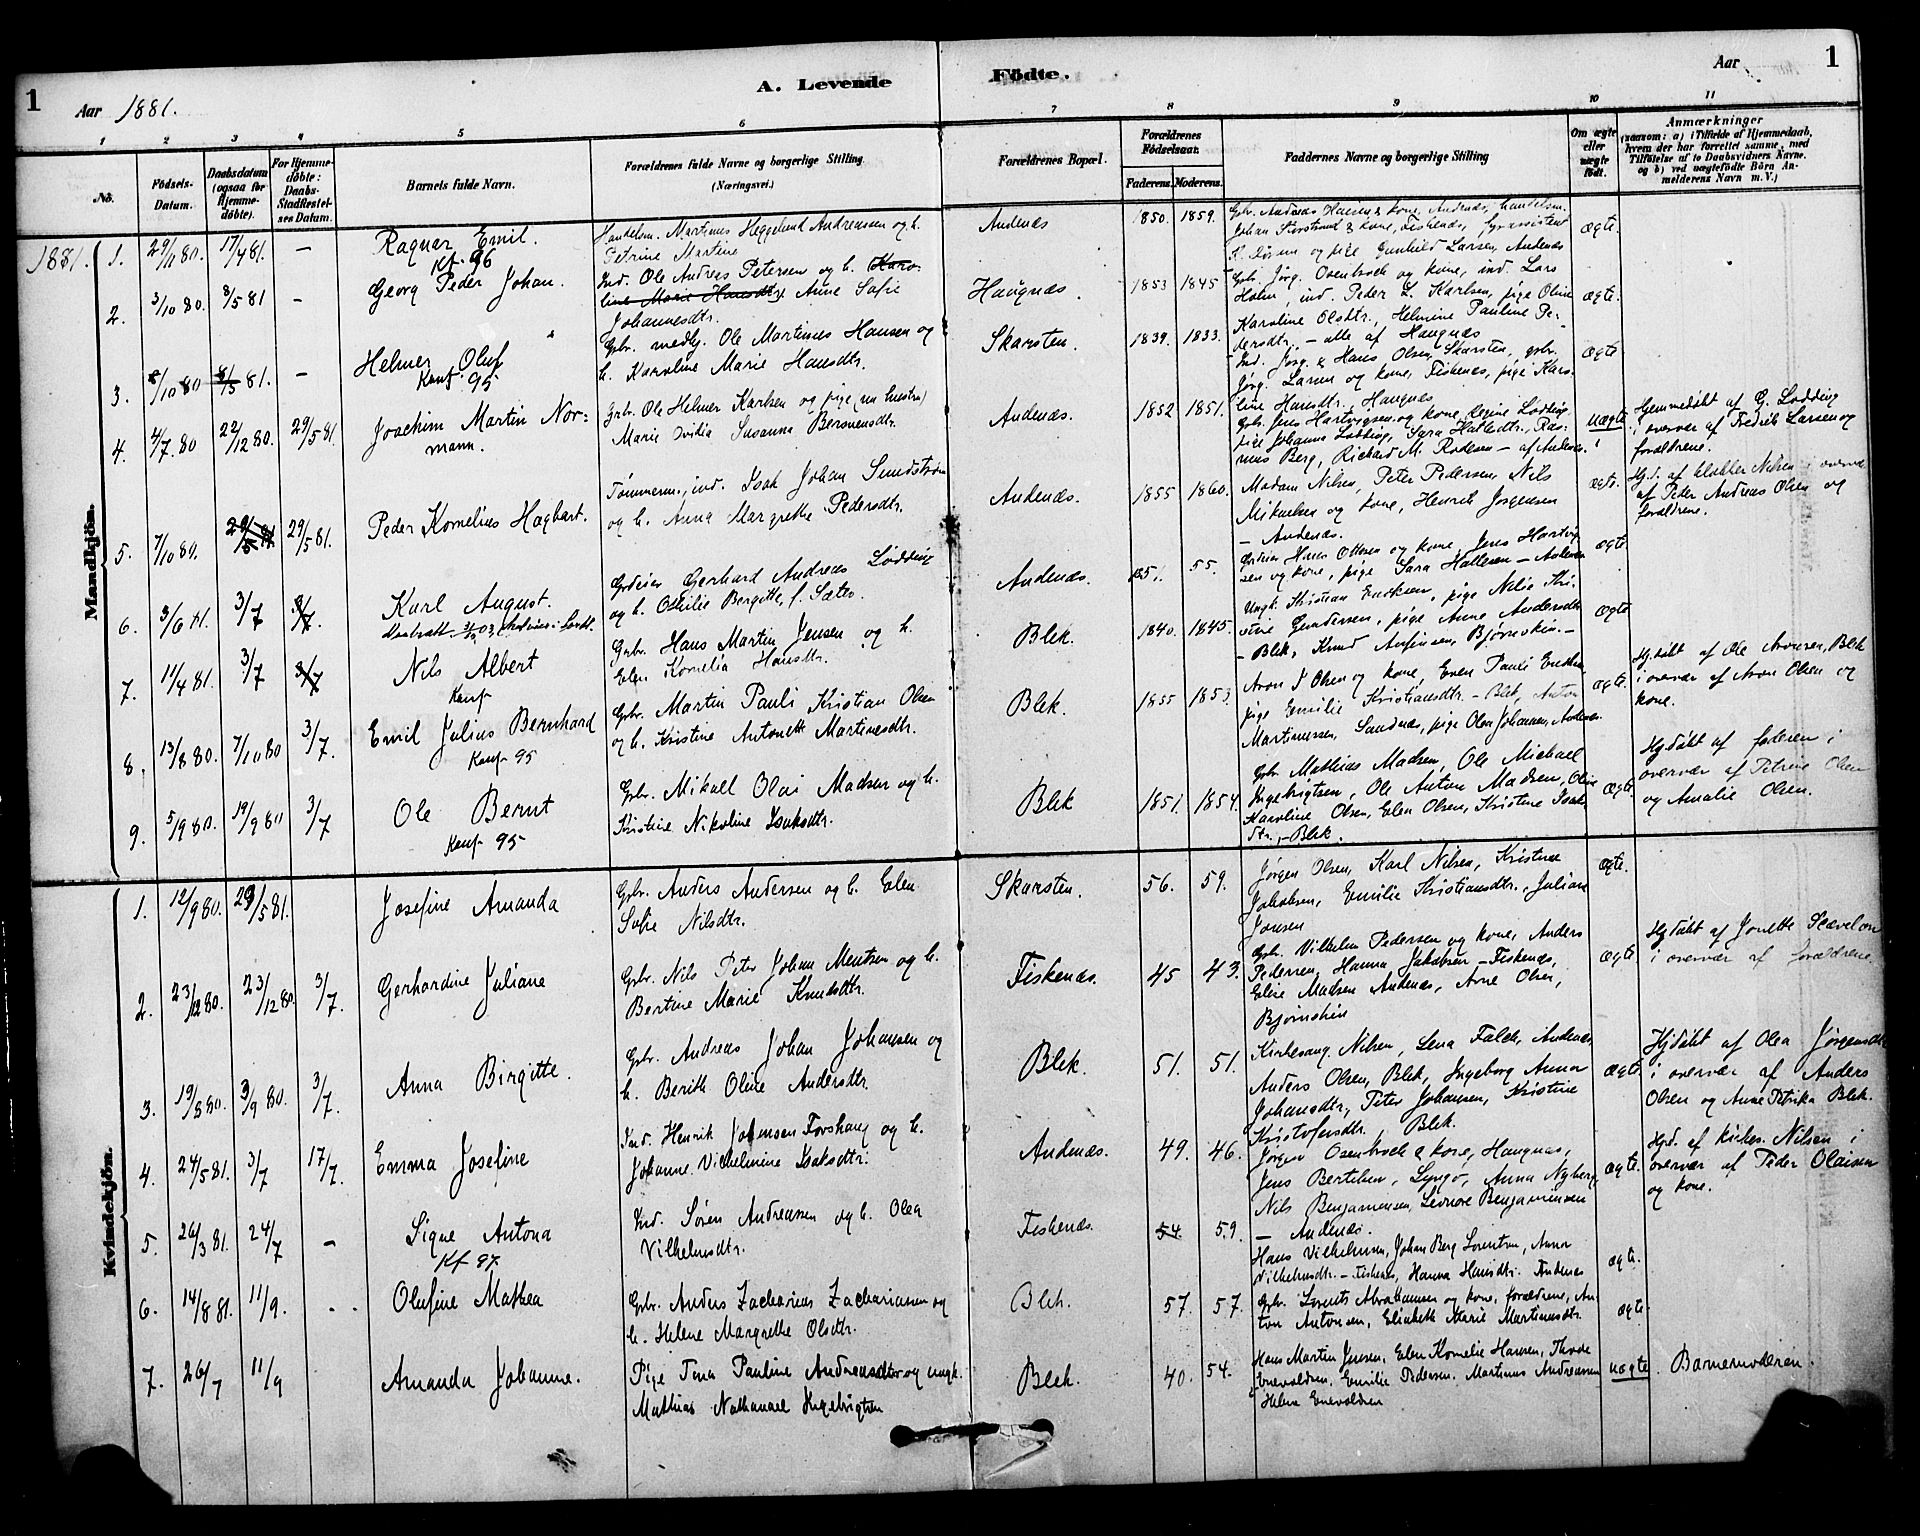 1
Aar 1881.
A. Levende Födte.
Aar
1
1
2
3
4
5
6
7
8
9
10
11
No.
Födsels-
Datum.
Daabsdatum
(ogsaa for
Hjemme-
döbte).
For Hjemme-
döbte:
Daabs-
Stadfæstel-
ses Datum.
Barnets fulde Navn.
Forældrenes fulde Navne og borgerlige Stilling.
(Næringsvei.)
Forældrenes Bopæl.
Forældrenes
Födselsaar.
Faderens. Moderens.
Faddernes Navne og borgerlige Stilling
Om ægte
eller
uægte
födt.
Anmærkninger
(saasom: a) i Tilfælde af Hjemmedaab,
hvem der har forrettet samme, med
Tilföielse af to Daabsvidners Navne,
og b) ved uægtefödte Börn An-
melderens Navn m. V.)
1881.
Mandkjön.
1. 29/11 80. 17/4 81. –
Ragnar Emil.
Kf. 96
Handelsm. Martinus Heggelund Andreassen og h.
Petrine Martine
Andenæs
1850. 1859.
Gbr. Andreas Hansen & kone, Andenæs, handelsm.
Johan & kone, Fiskenæs, fyrassistent
og pige Gunhild Larsen, Andenæs
ægte.
2. 3/10 80. 8/5 81 –
Georg Peder Johan.
Ind. Ole Andreas Petersen og h. Karo-
line Marie Hansdtr. Anne Sofie
Johannesdtr.
Haugnæs.
1853 1845
Gbr. Jørg. Osenbroch og kone, ind. Lars
Holm, ind. Peder L. Karlsen, pige Oline
Karoline Olsdtr., Helmine Pauline Pe-
dersdtr. – alle af Haugnæs
ægte.
3. 8/10 80 8/5 81. –
Helmer Oluf
Konf. 95
Gbr. medhj. Ole Martinus Hansen og
h. Karoline Marie Hansdtr.
Skarsten.
1839. 1833.
Ind. Jørg. & Hans Olsen, Skarsten, gbr.
Jørg. Larsen og kone, Fiskenæs, pige Karo-
line Hansdtr., Haugnæs
ægte
4. 4/7 80 22/12 80. 29/5 81.
Joachim Martin Nor-
mann.
Gbr. Ole Helmer Karlsen og pige (nu hustru)
Marie Ovidia Susanna Berntsdtr.
Andenæs.
1852 1851.
Gbr. Jens Hartvigsen og kone, Regine Lodding
pige Johanna Lodding, Sara Hallesdtr., Ras-
mus Berg, Richard M. Rodesen – af Andenæs.
uægte
Hjemmedøbt af G. Lodding
i overvær af Fredrik Larsen og
forældrene.
5. 7/10 80. 29/5 81 29/5 81.
Peder Kornelius Hagbart.
Tømmerm., ind. Isak Johan Sundstrøm
og h. Anna Margrethe Pedersdtr.
Andenæs.
1855 1860.
Madam Nilsen, Peter Pedersen, Nils
Mikaelsen og kone, Henrik Jørgensen
– Andenæs.
ægte.
Hjd. af klokker Nilsen i overvær
af Peder Andreas Olsen og
forældrene.
6. 3/6 81. 3/7 3/7.
Karl August.
Gbreier Gerhard Andreas Lodding
og h. Othilie Bergitte, f. Sæter.
Andenæs.
1851. 55.
Gbreier Hans Ottesen og kone, Jens Hartvig-
sen og kone, pige Sara Hallesen – Andenæs
ægte.
7. 11/4 81. 3/7 3/7
Nils Albert
Konf
Gbr. Hans Martin Jensen og h.
Elen Kornelia Hansdtr.
Blek.
1840. 1845.
Ungk. Kristian Eriksen, pige Nilia Kri-
stine Gundersen, pige Anne Andersdtr
– Blek, Knud Arfinsen, Bjørnskin. –
ægte
8. 13/8 80. 7/10 80 3/7.
Emil Julius Bernhard
Konf 95
Gbr. Martin Pauli Kristian Olsen
og h. Kristine Antonette Martinesdtr.
Blek.
1855 1853.
Aron P Olsen og kone, Even Pauli
pige Emilie Kristiansdtr – Blek, Anton
Martinussen, Sandnæs, pige Olea Johansen, Andenæs
ægte.
Hjdøbt af Ole Aronsen, Blek
i overvær af Aron Olsen og
kone.
9. 5/9 80. 19/9 80 3/7
Ole Bernt
Konf 95
Gbr. Mikael Olai Madsen og h.
Kristine Nikoline Isaksdtr.
Blek
1851. 1854.
Gbr. Mathias Madsen, Ole Michael
Ingebrigtsen, Ole Anton Madsen, Oline
Karoline Olsen, Elen Olsen, Kristine Isak-
dtr., – Blek.
ægte.
Hjdøbt af faderen i
overvær af Petrine Olsen
og Amalie Olsen.
Kvindekjön.
1. 12/9 80. 29/5 81.
Josefine Amanda
Gbr. Anders Andersen og h. Elen
Sofie Nilsdtr.
Skarsten.
56. 59.
Jørgen Olsen, Karl Nilsen, Kristine
Jakobsen, Emilie Kristiansdtr., Julian
Jonsen
ægte.
2. 23/12 80. 23/12 80. 3/7.
Gerhardine Juliane
Gbr. Nils Peter Johan Mentsen og h.
Bertine Marie Knudsdtr.
Fiskenæs.
45 43.
Gbr. Vilhelm Pedersen og kone, Anders
Pedersen, Hanna Jakobsen – Fiskenæs,
Elise Madsen Andenæs, Arne Olsen,
Bjørnskin
ægte
Hjdøbt af Jonette
i overvær af forældrene.
3. 19/8 80. 3/9 80. 3/7.
Anna Birgitte.
Gbr. Andreas Johan Johansen og
h. Berith Oline Andersdtr.
Blek.
51. 51.
Kirkesang. Nilsen, Lena Falch, Andenæs
Anders Olsen, Blek, Ingeborg Anna
Johansdtr., Peter Johansen, Kristine
Kristofersdtr. Blek.
ægte.
Hjdøbt af Olea Jørgensdtr
i overvær af Anders
Olsen og Anne Petrika Blek.
4. 24/5 81. 3/7 17/7.
Emma Josefine
Ind. Henrik Johnsen Forshaug og h.
Johanne Vilhelmine Isaksdtr.
Andenæs.
49. 46.
Jørgen Osenbroch & kone, Haugnæs,
Jens Bertelsen, Lyngø, Anna Nyberg
Nils Benjaminsen, Leonore Benjaminsen
– Andenæs.
ægte.
Hjd. af kirkes. Nilsen i
overvær af Peder Olaisen
og kone.
5. 26/3 81. 24/7 –
Signe Antona
Kf 97
Ind. Søren Andreassen og h. Olea
Vilhelmsdtr.
Fiskenæs.
54. 59.
Hans Vilhelmsen, Johan Berg Lorentsen, Anna
Vilhelmsdtr. – Fiskenæs, Hanna Hansdtr. Andenæs
ægte.
6. 14/8 81. 11/9. . .
Olufine Mathea
Gbr. Anders Zacharias Zachariassen og
h. Helene Margrethe Olsdtr.
Blek.
57. 57.
Gbr. Lorents Abrahamsen og kone, forældrene, An-
ton Antonsen, Elisabeth Marie Martinusdtr.
ægte.
7. 26/7 11/9
Amanda Johanne.
Pige Tina Pauline Andreasdtr og ungk.
Mathias Nathanael Ingebrigtsen
Blek.
40. 54.
Hans Martin Jensen, Elen Kornelie Hansen,
Enevoldsen, Emilie Pedersen, Martinus Andreassen
Helene Enevoldsen
uægte.
Barnemoderen.